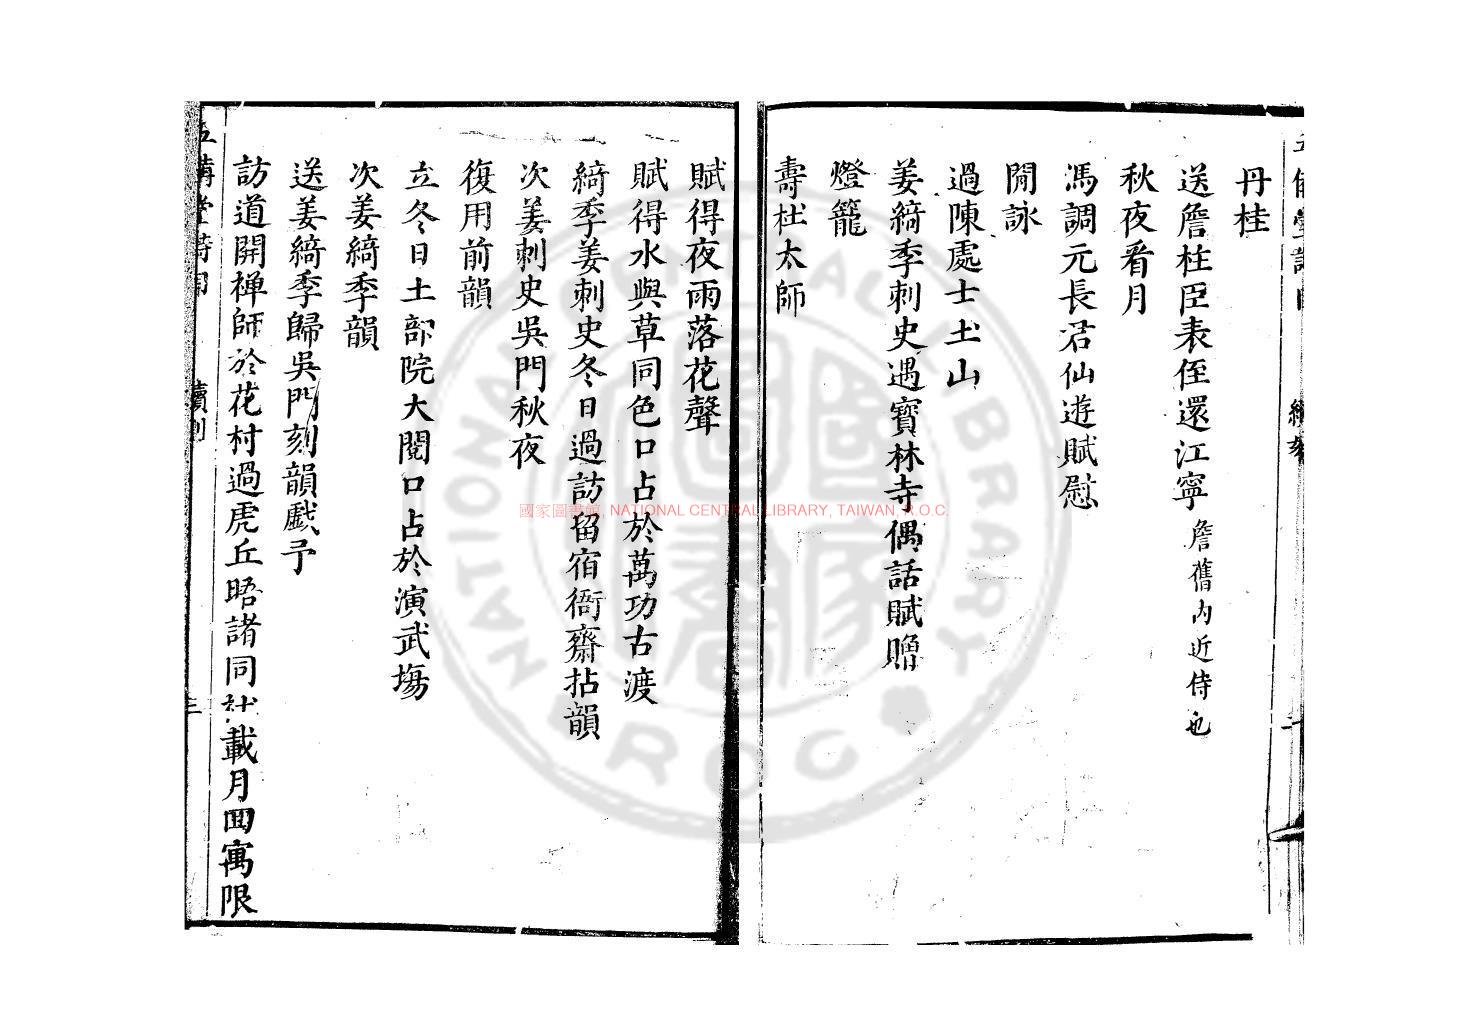 丹桂
送詹柱臣表侄還江寧 詹舊內近侍也
秋夜看月
馮調元長君仙遊賦慰
閒詠
過陳處士土山
姜綺季刺史遇寶林寺偶話賦贈
燈籠
壽杜太師
賦得夜雨落花聲
賦得水與草同色口占於萬功古渡
綺季姜刺史冬日過訪留宿衙齋拈韻
次姜刺史吳門秋夜
復用前韻
立冬日土部院大閱口占於演武場
次姜綺季韻
送姜綺季歸吳門刻韻戲予
訪道開禪師於花村過虎丘晤諸同社載月回寓限
續刻
三
國家圖書館, NATIONAL CENTRAL LIBRARY, TAIWAN, R.O.C
NATIONAL CENTRAL LIBRARY
ROC